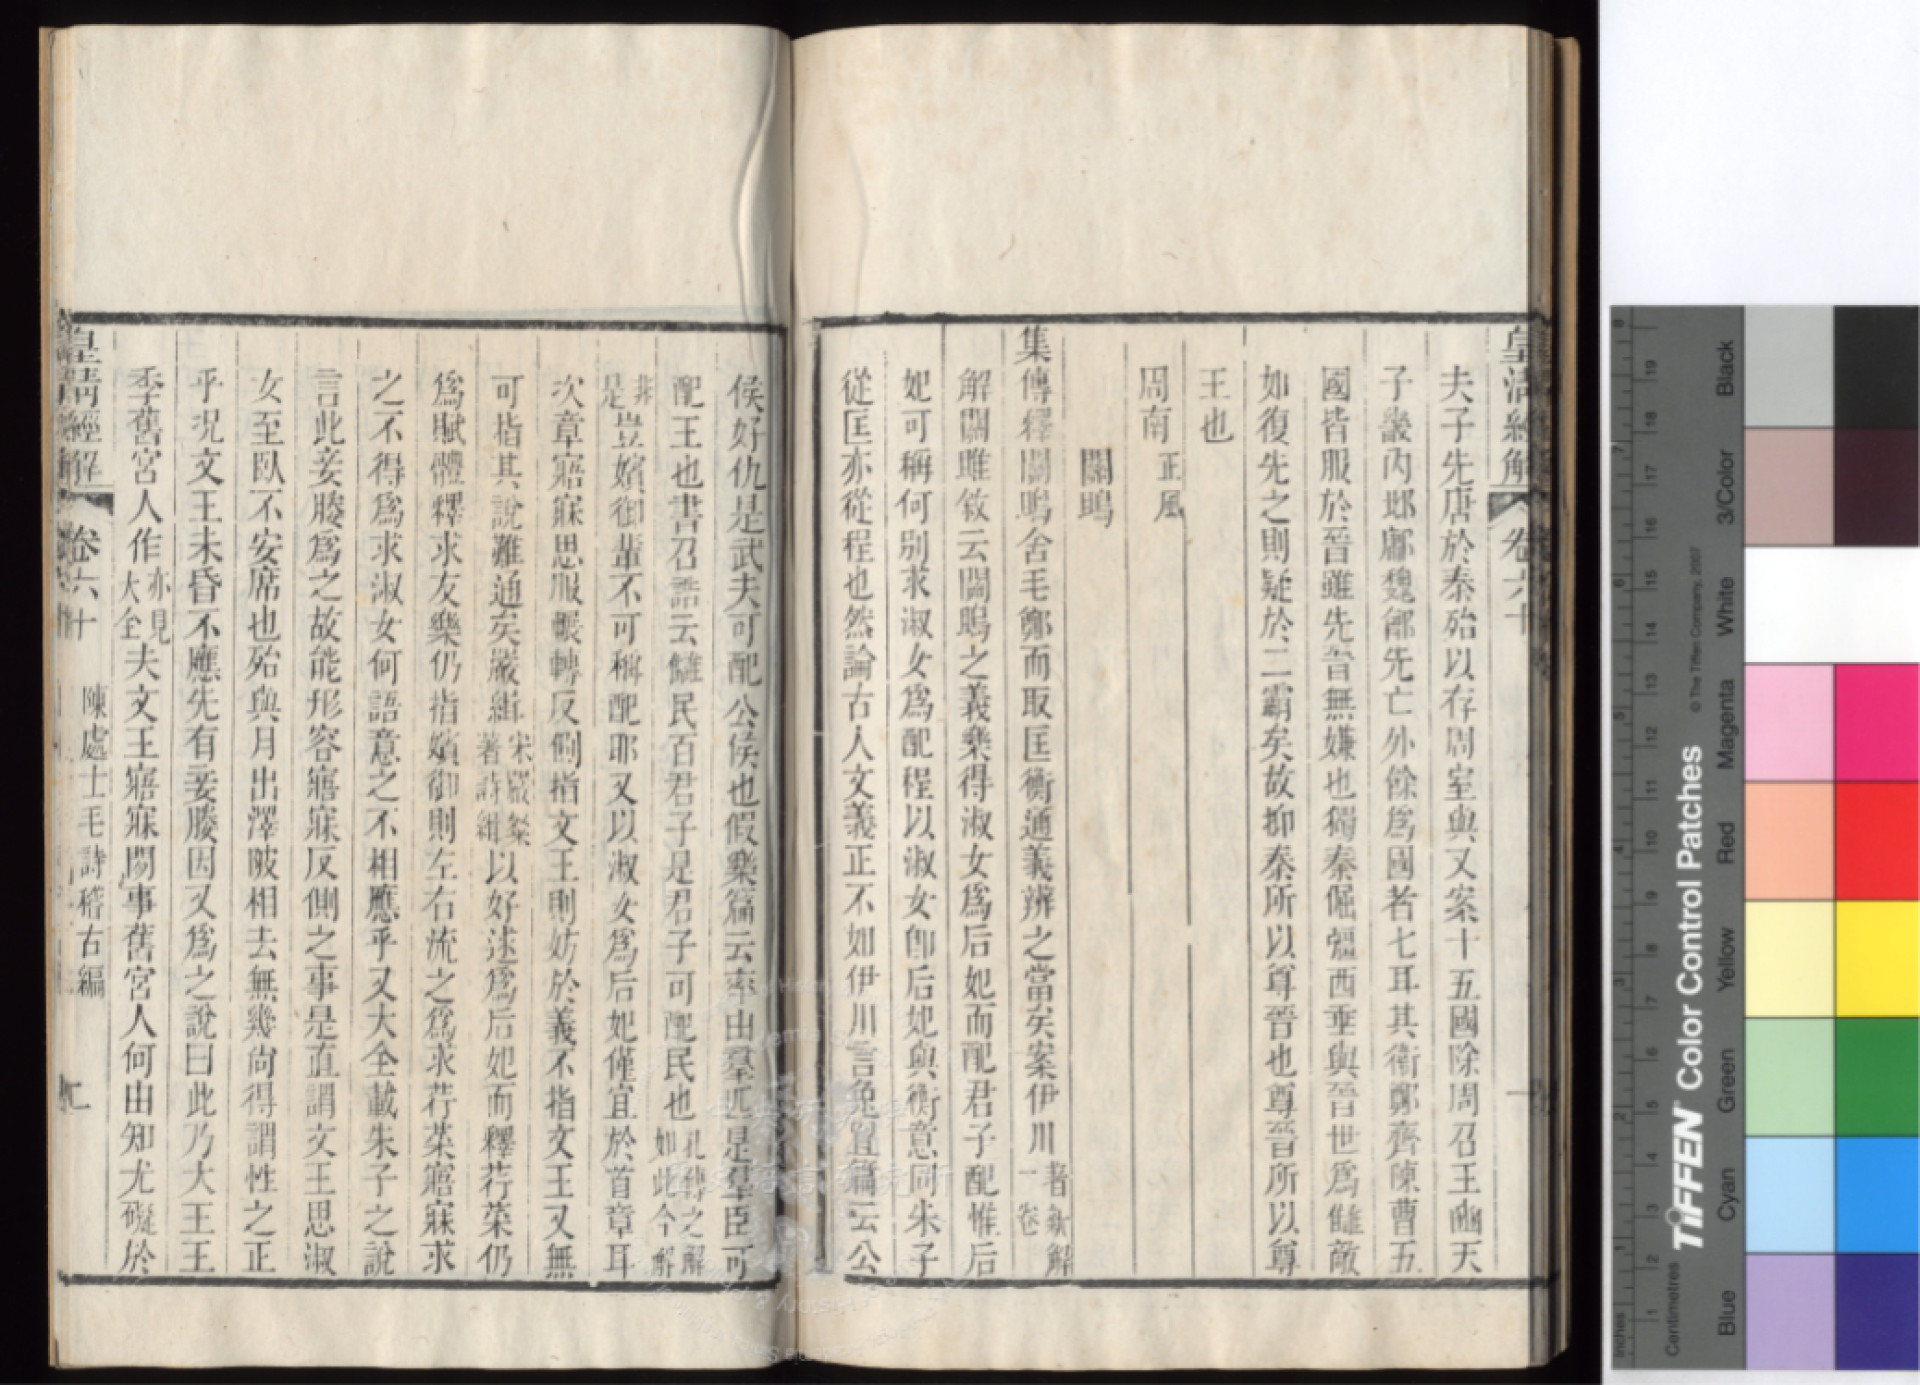 皇清經解 卷六十
夫子先唐於秦殆以存周室與又案十五國除周召王豳天
子畿內邶鄘魏鄶先亡外餘爲國者七耳其衛鄭齊陳曹五
國皆服於晉雖先晉無嫌也獨秦倔彊西垂與晉世爲讎敵
如復先之則疑於二霸矣故抑秦所以尊晉也尊晉所以尊
王也
周南 正風
關鴡
集傳釋關鴡舍毛鄭而取匡衡通義辨之當矣案伊川著新解一卷
解關雎敘云關鴡之義樂得淑女爲后妃而配君子配惟后
妃可稱何別求淑女爲配程以淑女卽后妃與衡意同朱子
從匡亦從程也然論古人文義正不如伊川言兔罝篇云公
侯好仇是武夫可配公侯也假樂篇云率由羣匹是羣臣可
配王也書召誥云讎民百君子是君子可配民也孔傳之解如此今解
非是豈嬪御輩不可稱配耶又以淑女爲后妃僅宜於首章耳
次章寤寐思服輾轉反側指文王則妨於義不指文王又無
可指其說難通矣嚴緝宋嚴粲著詩緝以好逑爲后妃而釋荇菜仍
爲賦體釋求友樂仍指嬪御則左右流之爲求荇菜寤寐求
之不得爲求淑女何語意之不相應乎又大全載朱子之說
言此妾媵爲之故能形容寤寐反側之事是直謂文王思淑
女至臥不安席也殆與月出澤陂相去無幾尙得謂性之正
乎況文王未昏不應先有妾媵因又爲之說曰此乃大王王
季舊宮人作亦見大全夫文王寤寐閒事舊宮人何由知尤礙於
皇清經解 卷六十 陳處士毛詩稽古編
Black
3/Color
White
Magenta
Red
Yellow
Green
Cyan
Blue
© The Tiffen Company, 2007
TIFFEN® Color Control Patches
Centimetres
Inches